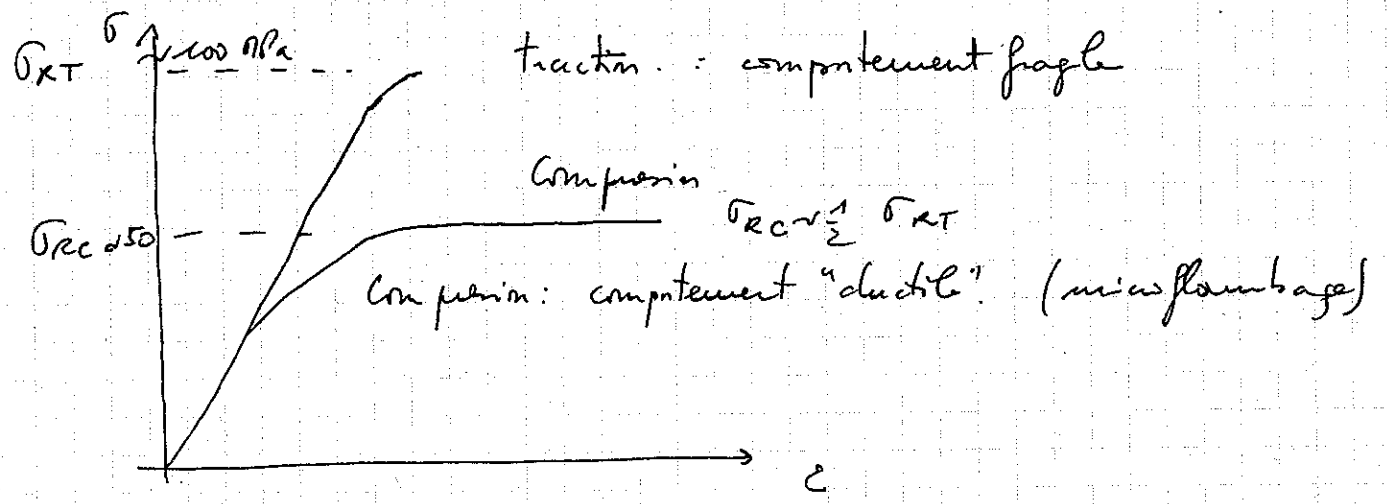 σ
σRT ~100 MPa
traction : comportement fragile
Compression
σRC ~50
σRC ~ 1/2 σRT
Compression : comportement "ductile". (microflambage)
ε